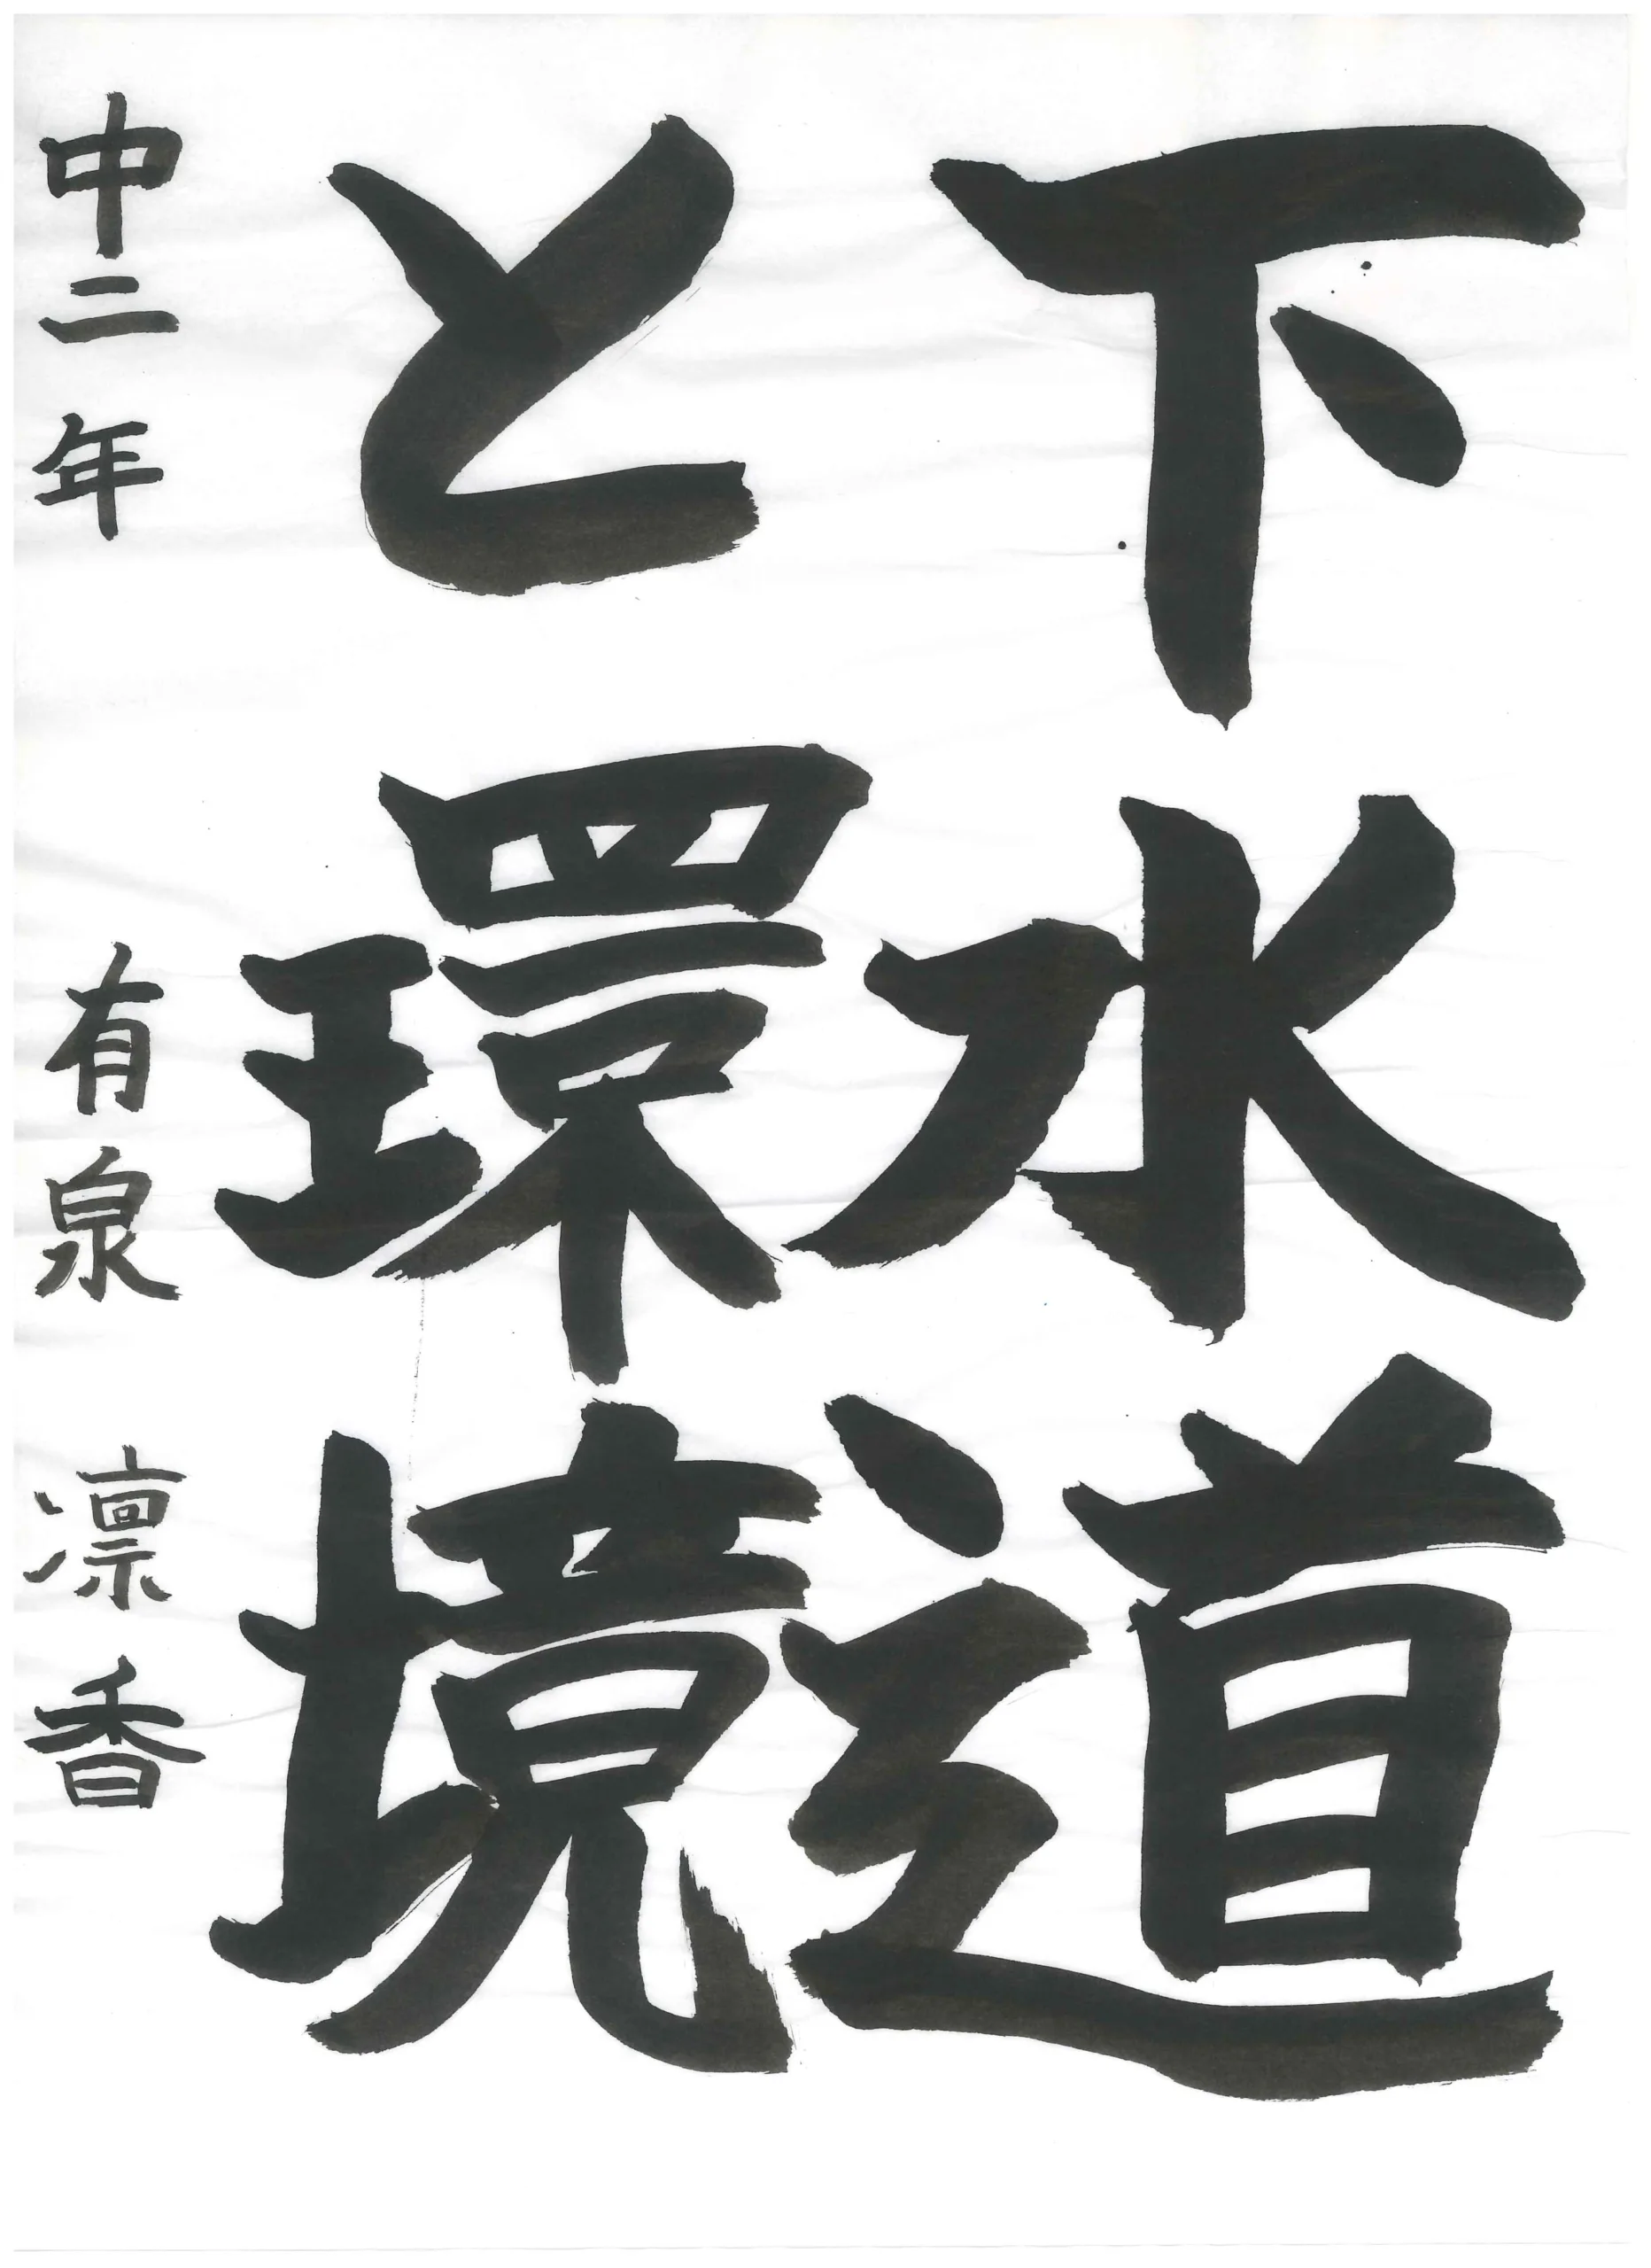 下水道
と環境
中二年 有泉 凛香